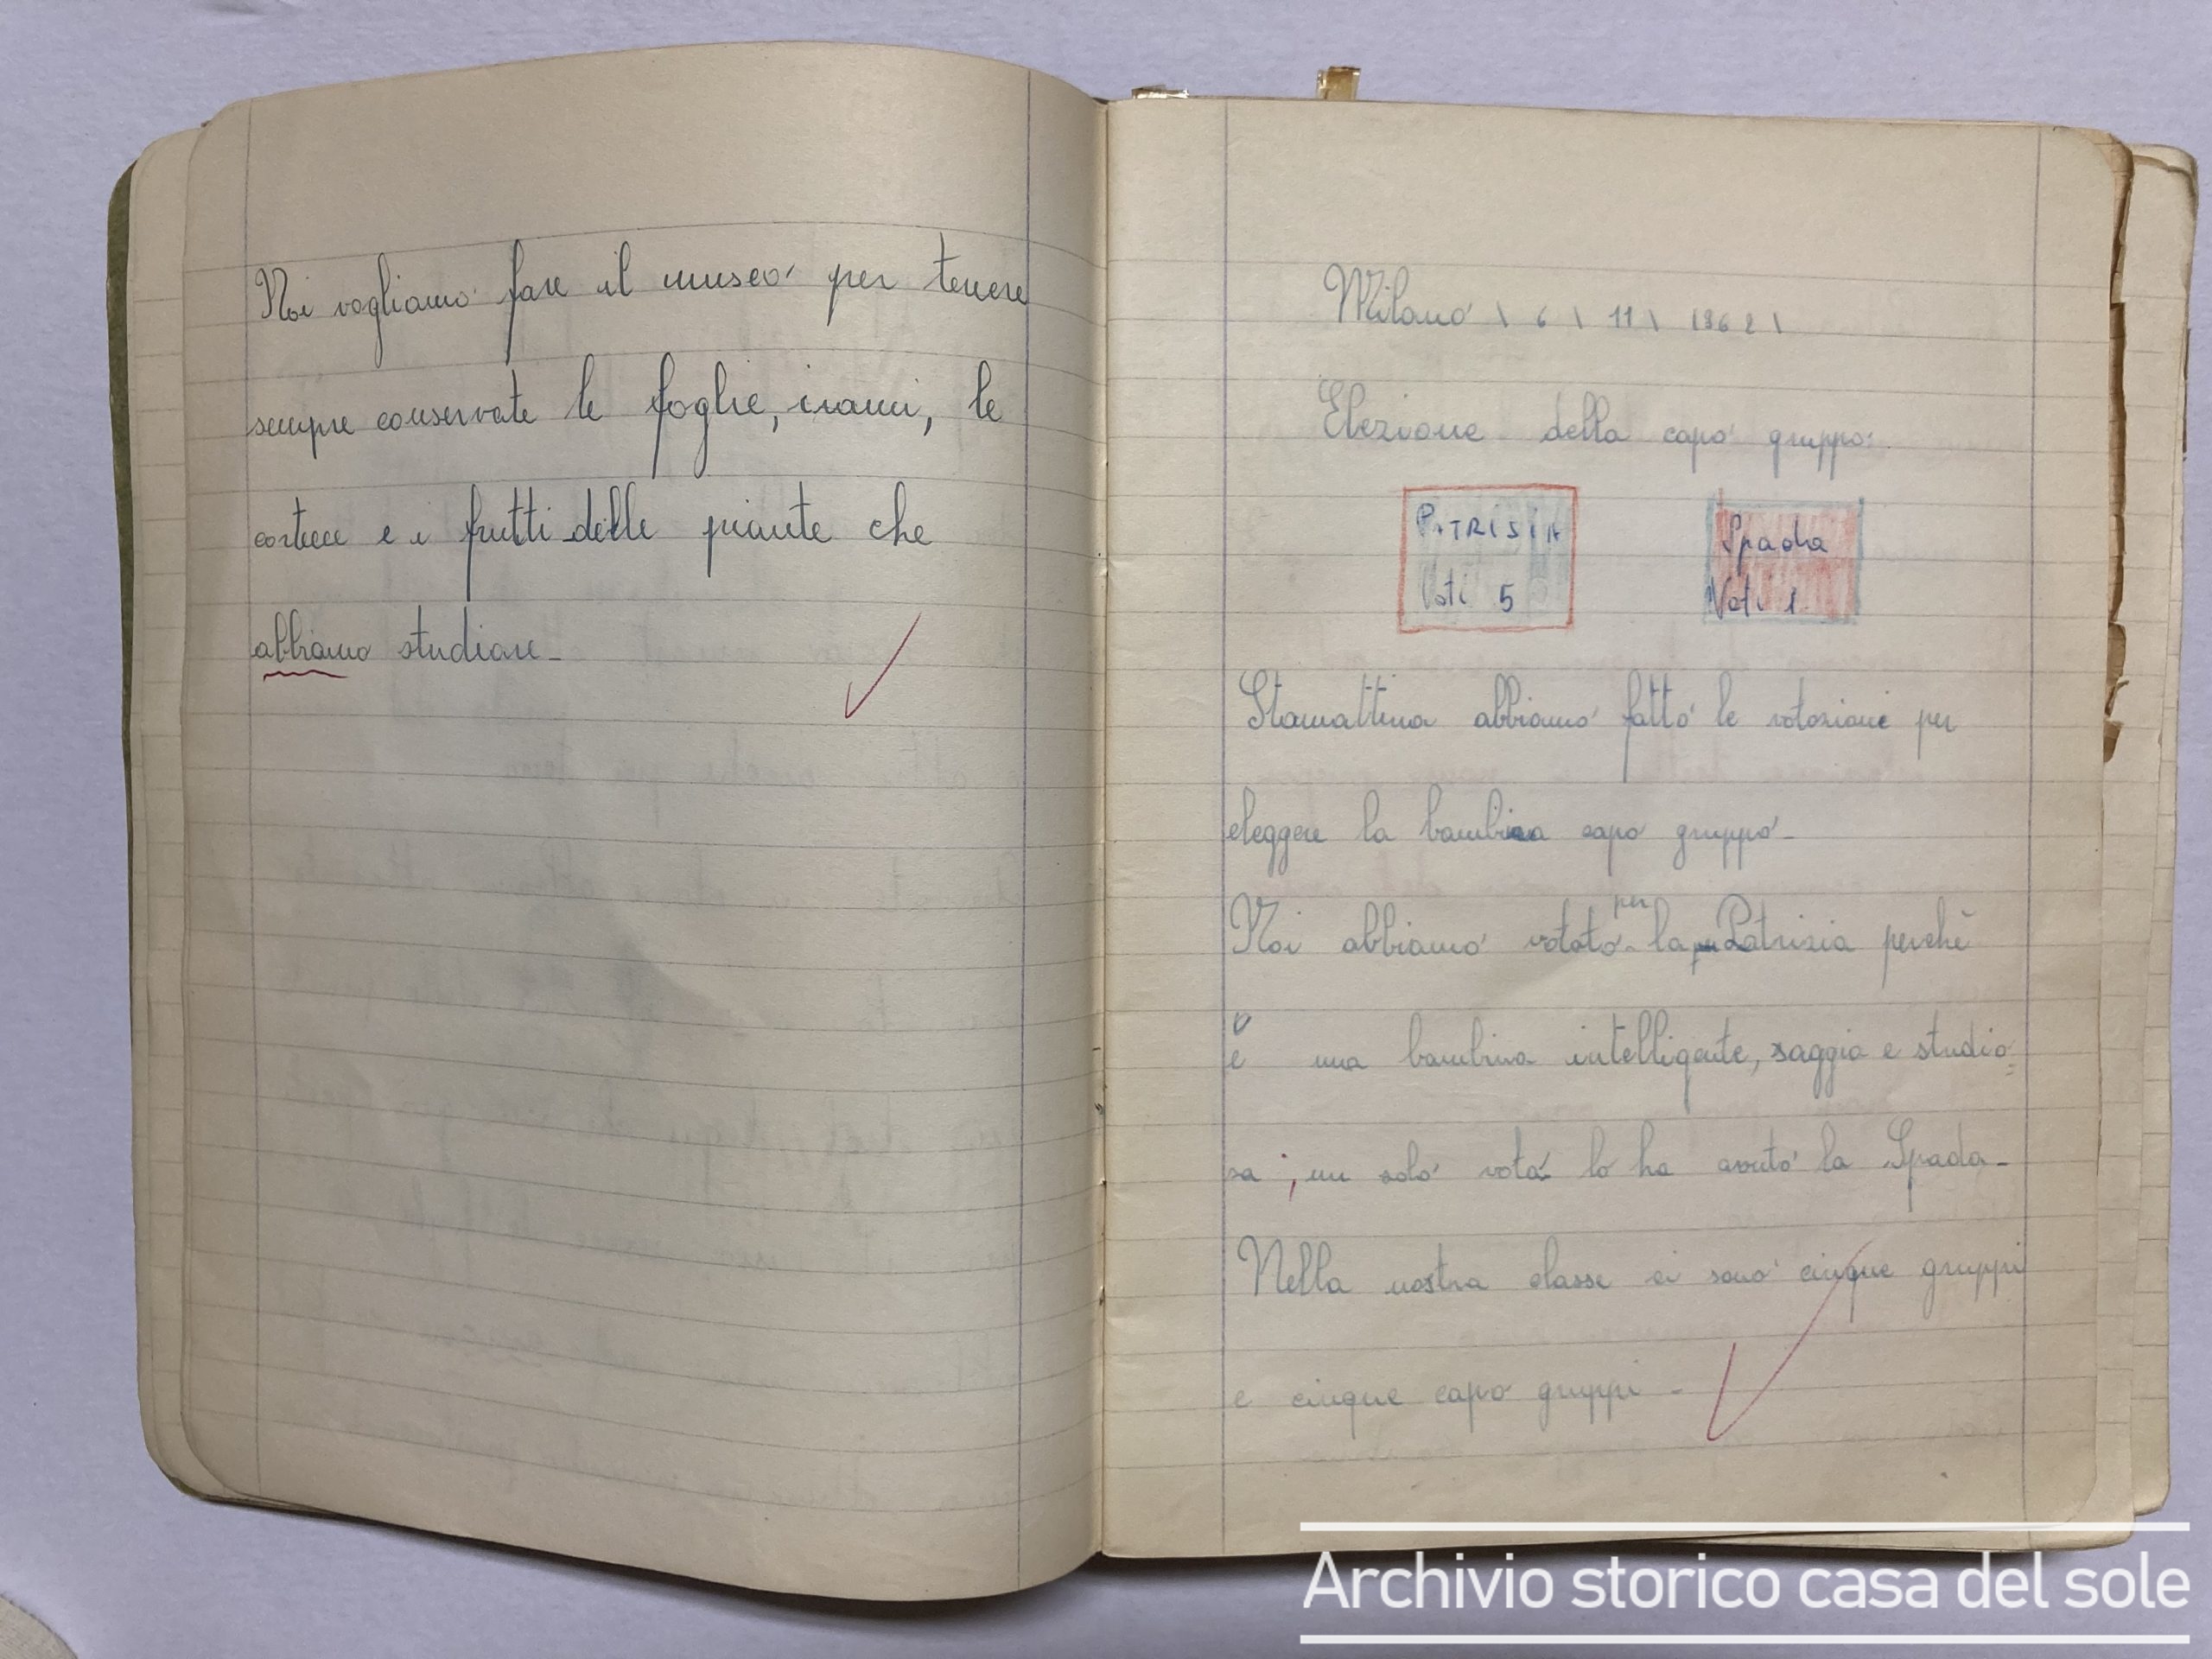 Noi vogliamo fare il museo per tenere
sempre conservate le foglie, i rami, le
cortecce e i frutti delle piante che
abbiamo studiare_
Milano \ 6 \ 11 \ 1962 \
Elezione della capo gruppo.
PATRISIA
Voti 5
Spada
Voti 1
Stamattina abbiamo fatto le votazioni per
eleggere la bambina capo gruppo_
per
Noi abbiamo votato la Patrizia perchè
è una bambina intelligente, saggia e studio=
sa ; un solo voto lo ha avuto la Spada_
Nella nostra classe ci sono cinque gruppi
e cinque capo gruppi _
Archivio storico casa del sole